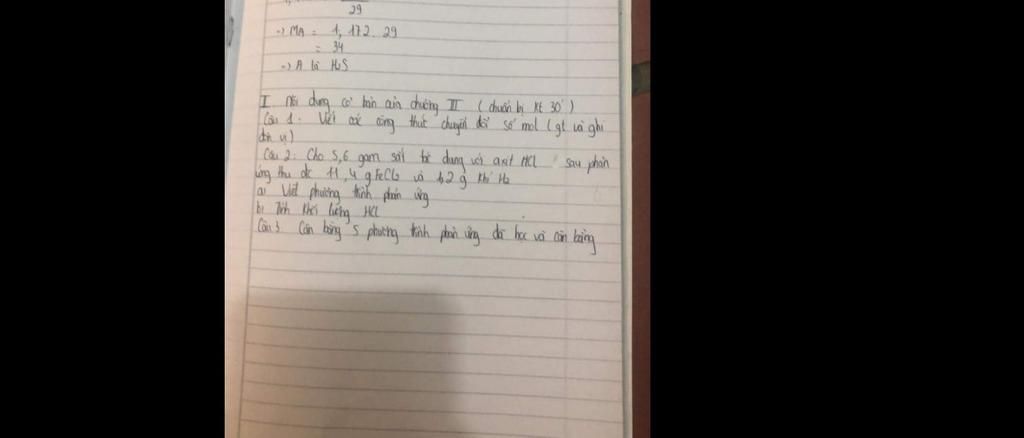 29
-> MA = 1,172.29
= 34
-> A là H2S
I Nội dung cơ bản của chương III (chuẩn bị kt 30')
Câu 1: Viết các công thức chuyển đổi số mol (gt và ghi
đơn vị)
Câu 2: Cho 5,6 gam sắt tác dụng với axit HCl sau phản
ứng thu đc 11,4 g FeCl2 và 1,2 g khí H2
a) Viết phương trình phản ứng
b) Tính khối lượng HCl
Câu 3. Cân bằng 5 phương trình phản ứng đã học và cân bằng